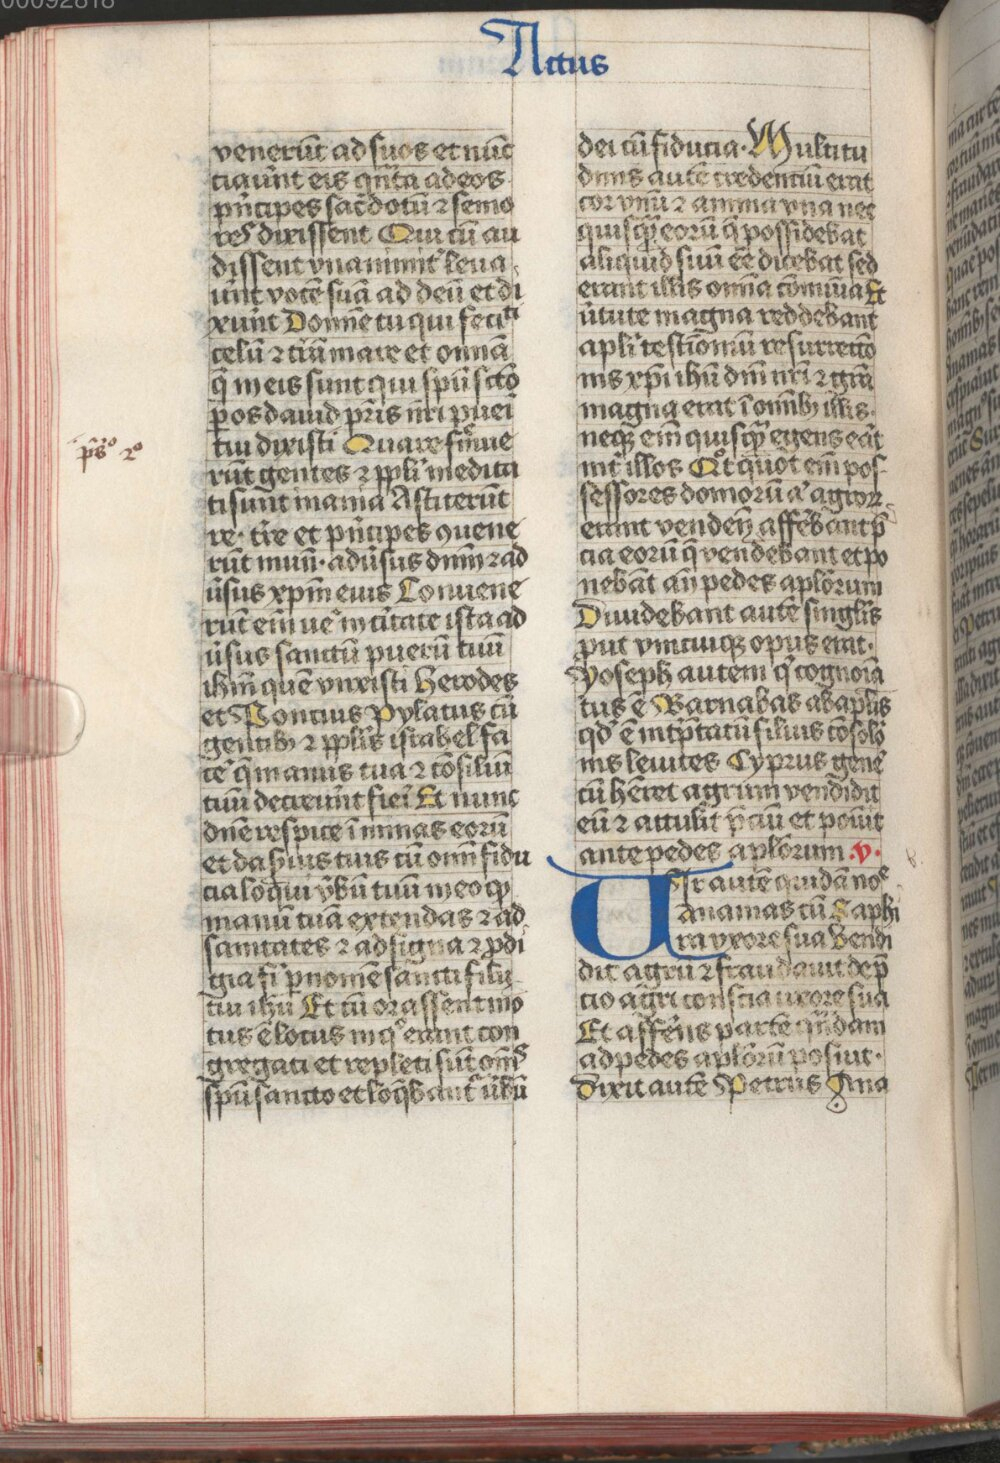 00092818
Actus
venerūt ad suos et nūc
ciauͬnt eis qͣnta ad eos
pͥncipes sac̄dotū ⁊ senio
res dixissent Qui cū au
dissent vnanimit̾ leua
uͬnt vocē suā ad deū et di
xunt Domine tu qui fecisti
celū ⁊ tr̄m mare et omnia
q̄ in eis sunt qui spū sctō
p os dauid pr̄is nr̄i pueri
tui dixisti Quare fr̄mue
rūt gentes ⁊ ppl̄i medita
ti sunt inania Astiterūt
re· tr̄e et pͥncipes ꝯuene
rūt in unū· aduͬsus dnm̄ ⁊ ad
uͬsus xp̄m eius Conuene
rūt eī ue͛ in ciuitate ista ad
uͬsus sanctū puerū tuū
ih̄m quē vnxisti Herodes
et Poncius pylatus cū
gentibꝫ ⁊ ppl̄is israhel fa
ce͛ q̄ manus tua ⁊ cōsiliū
tuū decreuͬnt fieri Et nunc
dn̄e respice ī minas eorū
et da s̄uis tuis cū om̄i fidu
cia loqui v̾bū tuū in eo qͩ
manū tuā extendas ⁊ ad
sanitates ⁊ ad signa ⁊ ꝓdi
gia fi͛i p nomē sancti filij
tui ih̄u Et cū orassent mo
tus ē locus in qͦ erant con
gregati et repleti sūt om̄s
spū sancto et loqͣbant̾ v̾bū
ps̄ᵒ 2ᵒ
dei cū fiducia· Multitu
dinis autē credentiū erat
cor vnū ⁊ anima vna nec
quisqͣ eorū q̄ possidebat
aliquid suū eē dicebat sed
erant illis omīa cōmūia Et
v̾tute magna reddebant
apl̄i testīoniū resurrectō
nis xp̄i ih̄u dn̄i nr̄i ⁊ grā
magna erat ī omībꝫ illis·
neqꝫ enī quisqͣ egens erat
int̾ illos Qͦt quot enī pos
sessores domorū aͭ agrorū
erant vendentes affērebant p̄
cia eorū q̄ vendebant et po
nebāt an̄ pedes apl̄orum
Diuidebant autē singl̄is
ꝓut vnicuiqꝫ opus erat·
Joseph autem qͥ cognomīa
tus ē Barnabas ab apl̄is
qd̄ ē int̾p̄tatū filius cōsolō
nis leuites Cyprus gene͛
cū hēret agrum vendidit
eū ⁊ attulit p̄ciū et posuit
ante pedes apl̄orum ·v·
Uir autē quidā noīe
ananias cū Saphi
ra vxore sua vendi
dit agrū ⁊ fraudauit de p̄
cio agri conscia uxore sua
Et affe͛ns partē qͣndam
ad pedes apl̄orū posuit·
Dixit autē Petrus Ana